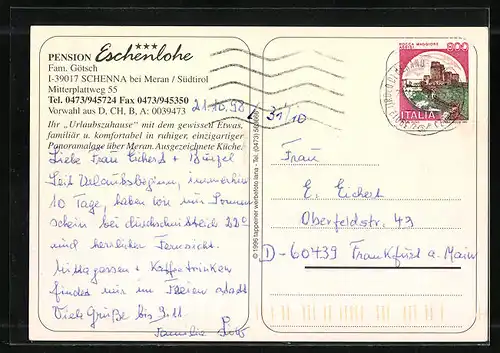 PENSION Eschenlohe
Fam. Götsch
I-39017 SCHENNA bei Meran / Südtirol
Mitterplattweg 55
Tel. 0473/945724 Fax 0473/945350
Vorwahl aus D, CH, B, A: 0039473
Ihr „Urlaubszuhause" mit dem gewissen Etwas,
familiär u. komfortabel in ruhiger, einzigartiger
Panoramalage über Meran. Ausgezeichnete Küche.
21.10.98
Liebe Frau Eichert +
Seit Urlaubsbeginn, immerhin
10 Tage, haben wir nur Sonnen
schein bei durchschnittlich 22°
und herrlicher Fernsicht.
Mittagessen + Kaffeetrinken
findet nur im Freien statt
Viele Grüße bis 9.11
Familie
© 1996 tappeiner werbefoto lana - Tel. (0473)
31/10
ROCCA MAGGIORE
ASSISI
800
ITALIA
Frau
E. Eichert
Oberfeldstr. 43
D-60439 Frankfurt a. Main